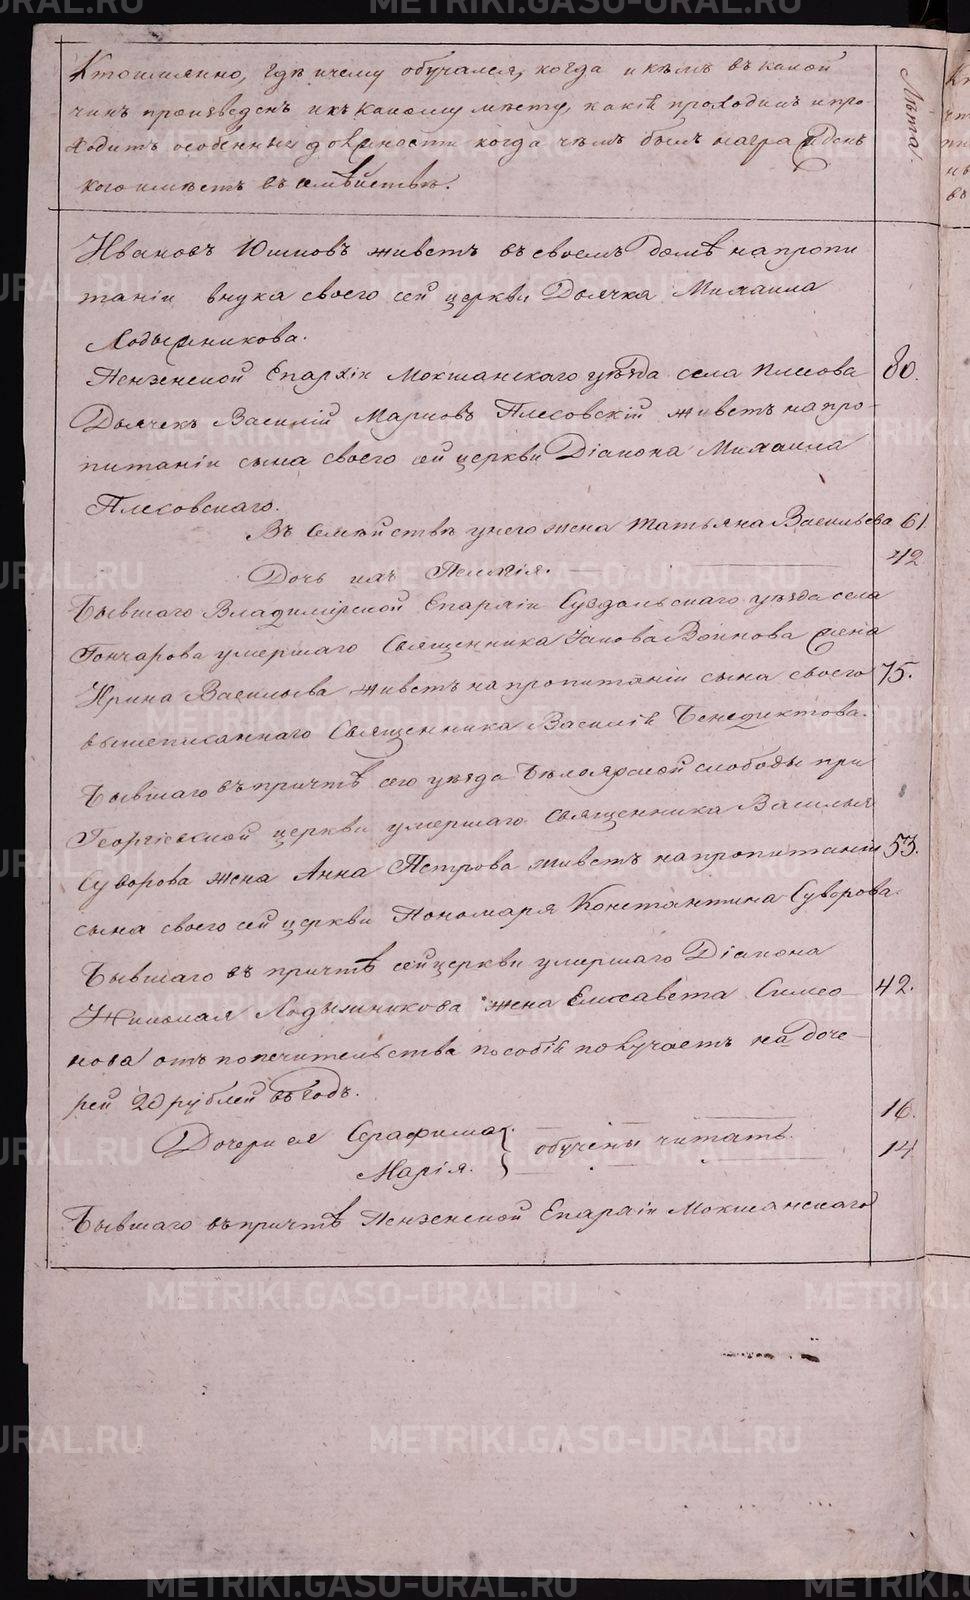 Кто имянно, где и чему обучался, когда и кѣмъ въ какой
чинъ произведенъ и къ какому мѣсту, какiе проходилъ и про-
ходитъ особенныя должности когда чѣмъ былъ награжденъ
кого имѣетъ въ семѣйствѣ.
Лѣта.
Ивановъ Юшковъ живетъ въ своемъ домѣ на пропи
танiи внука своего сей церкви Дьячка Михаила
Лодыжникова.
Пензенской Епархiи Мокшанскаго уѣзда села Плесова 80.
Дьячекъ Василiй Марковъ Плесовскiй живетъ на про-
питанiи сына своего сей церкви Дiакона Михаила
Плесовскаго.
Въ Семѣйствѣ у него жена Татьяна Васильева 61.
Дочь ихъ Пелагiя. 42
Бывшаго Владимiрской Епархiи Суздальскаго уѣзда села
Гончарова умершаго Священника Iакова Воинова жена
Ирина Васильева живетъ на пропитанiи сына своего 75.
вышеписаннаго Священника Василiя Бенедиктова.
Бывшаго въ причтѣ сего уѣзда Бѣлоярской слободы при
Георгiевской церкви умершаго Священника Василья
Суворова жена Анна Петрова живетъ на пропитанiи 53.
сына своего сей церкви Пономаря Константина Суворова.
Бывшаго въ причтѣ сей церкви умершаго Дiакона
Николая Лодыжникова жена Елисавета Симео- 42.
нова отъ попечительства пособiй получаетъ на доче-
рей 20 рублей въ годъ.
Дочери ея Серафима 16.
обучены читать.
Марiя. 14
Бывшаго въ причтѣ Пензенской Епархiи Мокшанскаго
METRIKI.GASO-URAL.RU